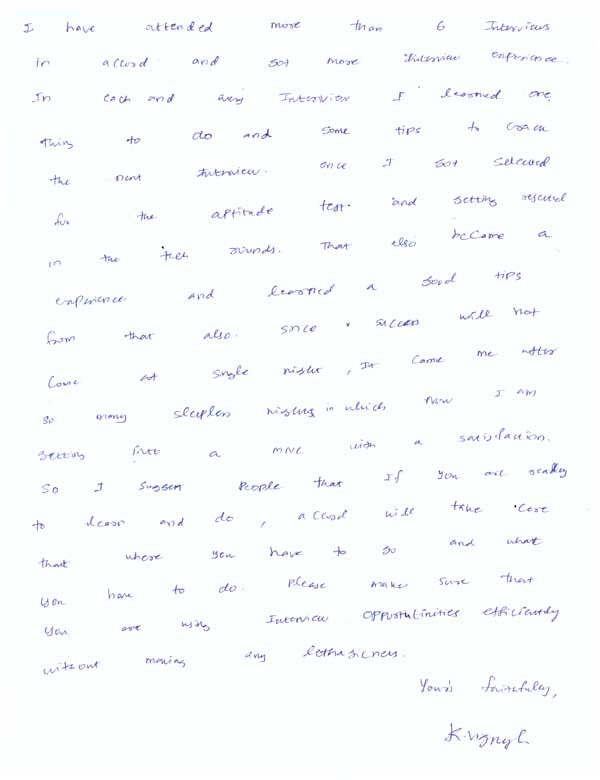 I have attended more than 6 Interviews
in accord and got more Interview experience.
In each and every Interview I learned one
thing to do and some tips to crack
the next Interview. once I got selected
for the aptitude test. and getting rejected
in the tech rounds. That also became a
experience and learned a good tips
from that also. since success will not
come at single night, It came me after
so many sleepless nights in which now I am
getting into a MNC with a satisfaction.
So I suggest people that if you are ready
to learn and do, accord will take care
that where you have to go and what
you have to do. please make sure that
you are using Interview opportunities efficiently
without making any
Yours faithfully,